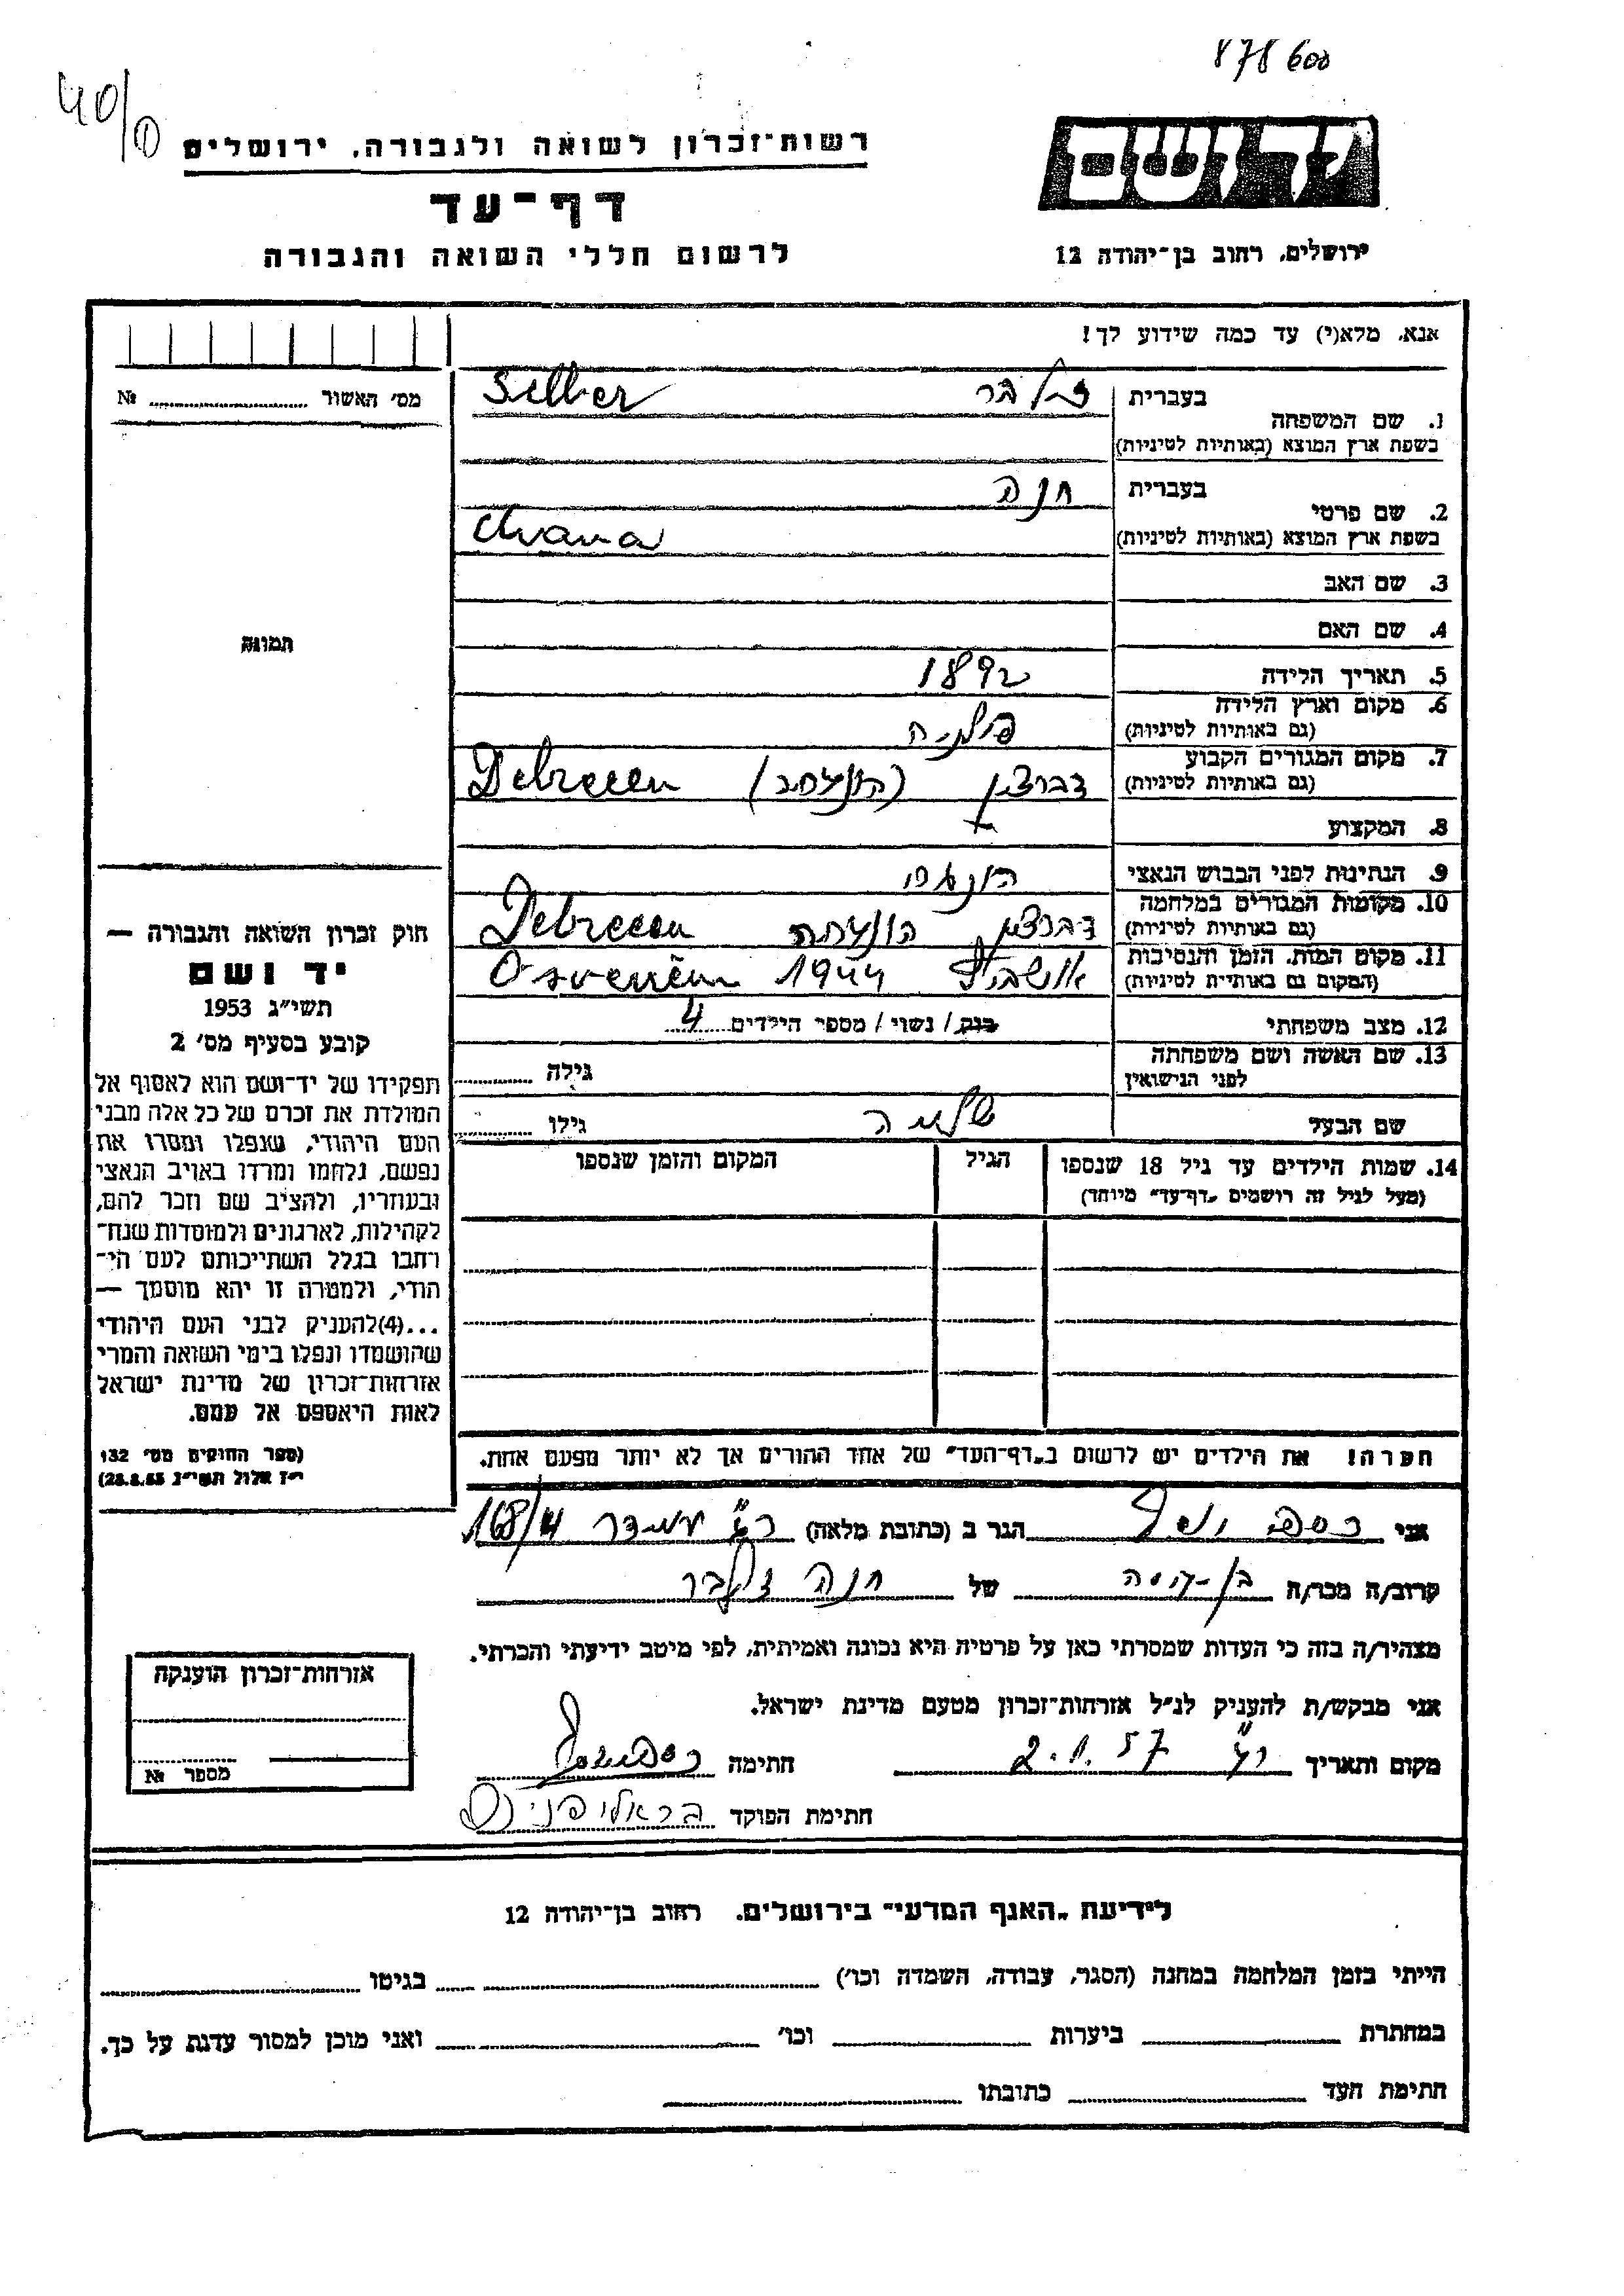 878600
40/1
רשות־זכרון לשואה ולגבורה, ירושלים
יד ושם
דף־עד
לרשום חללי השואה והגבורה
ירושלים, רחוב בן־יהודה 12
אנא, מלא(י) עד כמה שידוע לך!
מס׳ האשור № 
1. שם המשפחה בעברית זילבר Silber
בשפת ארץ המוצא (באותיות לטיניות)
2. שם פרטי בעברית חנה
בשפת ארץ המוצא (באותיות לטיניות) Chana
3. שם האב
4. שם האם
תמונה
5. תאריך הלידה 1892
6. מקום וארץ הלידה (גם באותיות לטיניות) פולניה
7. מקום המגורים הקבוע (גם באותיות לטיניות) דברצין (הונגריה) Debrecen
8. המקצוע
9. הנתינות לפני הכבוש הנאצי הונגרי
10. מקומות המגורים במלחמה (גם באותיות לטיניות) דברצין הונגריה Debrecen
11. מקום המות, הזמן והנסיבות (המקום גם באותיות לטיניות) אושביץ 1944
12. מצב משפחתי רווק / נשוי / מספר הילדים 4
13. שם האשה ושם משפחתה לפני הנישואין גילה
שם הבעל שלמה גילו
14. שמות הילדים עד גיל 18 שנספו הגיל המקום והזמן שנספו
(מעל לגיל זה רושמים „דף־עד״ מיוחד)
הערה! את הילדים יש לרשום ב„דף־העד״ של אחד ההורים אך לא יותר מפעם אחת.
חוק זכרון השואה והגבורה —
יד ושם
תשי״ג 1953
קובע בסעיף מס׳ 2
תפקידו של יד־ושם הוא לאסוף אל
המולדת את זכרם של כל אלה מבני
העם היהודי, שנפלו ומסרו את
נפשם, נלחמו ומרדו באויב הנאצי
ובעוזריו, ולהציב שם וזכר להם,
לקהילות, לארגונים ולמוסדות שנח־
רבו בגלל השתייכותם לעם הי־
הודי, ולמטרה זו יהא מוסמך —
...(4)להעניק לבני העם היהודי
שהושמדו ונפלו בימי השואה והמרי
אזרחות־זכרון של מדינת ישראל
לאות היאספם אל עמם.
(ספר החוקים מס׳ 132
י״ז אלול תשי״ג 28.8.53)
אני יוסף הגר ב (כתובת מלאה) עמידר 168/4
קרוב/ה מכר/ה של חנה זילבר
מצהיר/ה בזה כי העדות שמסרתי כאן על פרטיה היא נכונה ואמיתית, לפי מיטב ידיעתי והכרתי.
אני מבקש/ת להעניק לנ״ל אזרחות־זכרון מטעם מדינת ישראל.
מקום ותאריך 2.1.57 חתימה
חתימת הפוקד
אזרחות־זכרון הוענקה
מספר №
לידיעת „האגף המדעי״ בירושלים, רחוב בן־יהודה 12
הייתי בזמן המלחמה במחנה (הסגר, עבודה, השמדה וכו׳) בגיטו
במחתרת ביערות וכו׳ ואני מוכן למסור עדות על כך.
חתימת העד כתובתו